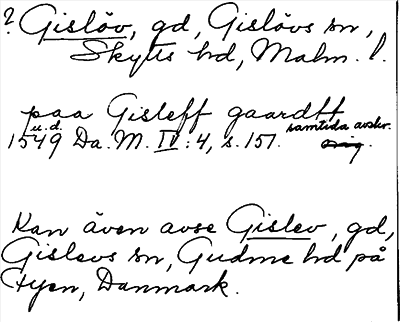 ? Gislöv, gd, Gislövs sn,
Skytts hd, Malm. l.
paa Gisleff gaardtt
u.d. samtida avskr.
1549 Da. M. IV: 4, s. 151.
Kan även avse Gislev, gd,
Gislevs sn, Gudme hd på
Fyen, Danmark.